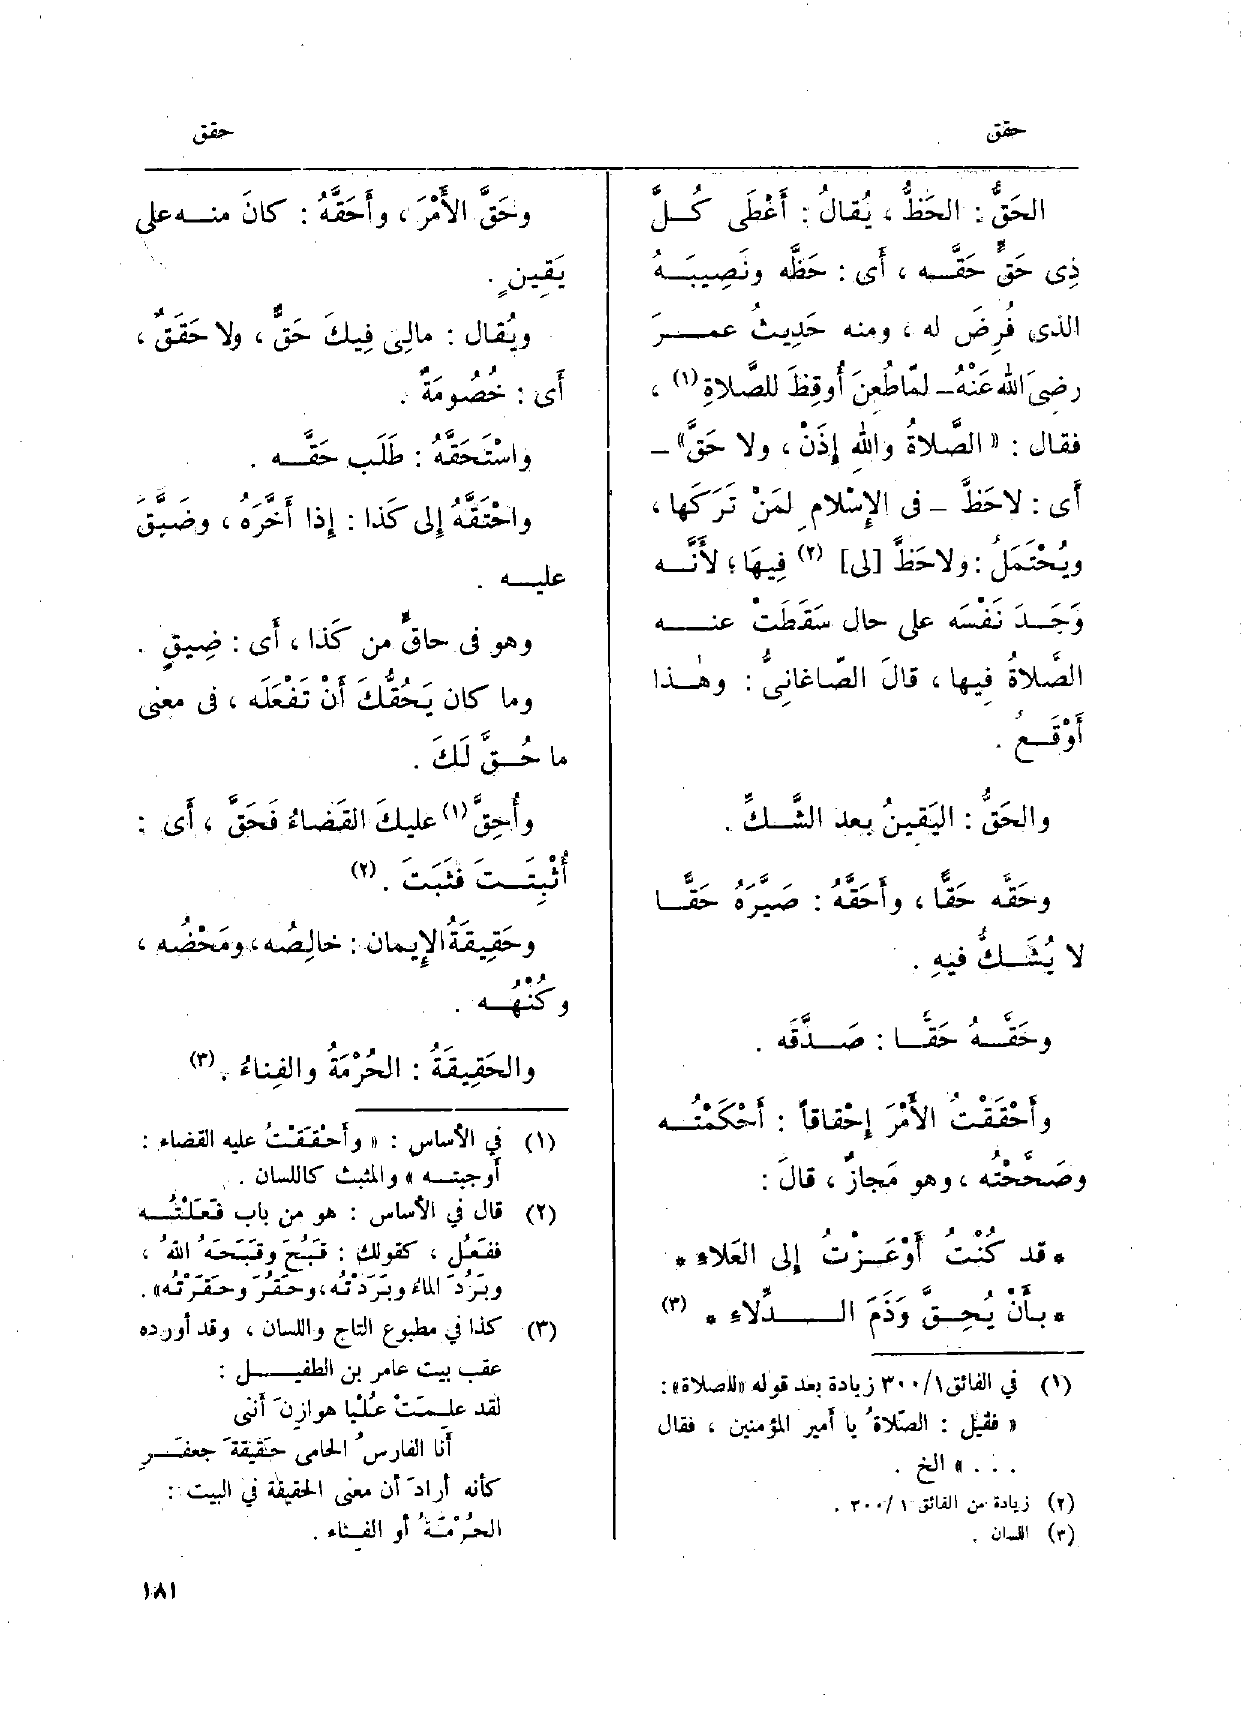 حقق
حقق
الحَقُّ : الحَظُّ ، يُقالُ : أَعْطَى كُـلَّ
ذِى حَقٍّ حَقَّـه ، أَى : حَظَّه ونَصِيبَـهُ
الذى فُرِضَ له ، ومنه حَدِيثُ عمـرَ
رضىَ اللهُ عَنْهُ ـ لمّا طُعِنَ أُوقِظَ للصَّلاةِ (١) ،
فقال : « الصَّلاةُ واللهِ إِذَنْ ، ولا حَقَّ» ـ
أَى : لاحَظَّ ـ فى الإِسْلامِ لِمَنْ تَرَكَها ،
ويُحْتَمَلُ : ولاحَظَّ [لى] (٢) فِيهَا ؛ لأَنَّـه
وَجَـدَ نَفْسَه على حال سَقَطَتْ عنـه
الصَّلاةُ فِيها ، قالَ الصّاغانِىُّ : وهٰـذا
أَوْقَـعُ .
والحَقُّ : اليَقِينُ بعد الشَّـكِّ .
وحَقَّه حَقًّا ، وأَحَقَّهُ : صَيَّرَهُ حَقًّـا
لا يُشَـكُّ فيهِ .
وحَقَّـهُ حَقًّـا : صَـدَّقَه .
وأَحْقَقْتُ الأَمْرَ إِحْقاقاً : أَحْكَمْتُـه
وصَحَّحْتُه ، وهو مَجازٌ ، قالَ :
* قد كُنْتُ أَوْعَـزْتُ إِلى العَلاءِ *
* بأَنْ يُحِـقَّ وَذَمَ الـدِّلاءِ * (٣)
(١) في الفائق ١/ ٣٠٠ زيادة بعد قوله «للصلاة» :
« فقيل : الصّلاةُ يا أمير المؤمنين ، فقال
. . . » الخ .
(٢) زيادة من الفائق ١/ ٣٠٠ .
(٣) اللسان .
وحَقَّ الأَمْرَ ، وأَحَقَّهُ : كانَ منـه على
يَقِينٍ .
ويُقال : مالِى فِيكَ حَقٌّ ، ولا حَقَقٌ ،
أَى : خُصُومَةٌ .
واسْتَحَقَّهُ : طَلَب حَقَّـه .
واحْتَقَّهُ إِلى كَذا : إِذا أَخَّرَه ، وضَيَّقَ
عليـه .
وهو فى حاقٍّ من كَذا ، أَى : ضِيقٍ .
وما كان يَحُقُّكَ أَنْ تَفْعَلَه ، فى معنى
ما حُـقَّ لَكَ .
وأُحِقَّ (١) عليكَ القَضاءُ فَحَقَّ ، أَى :
أُثْبِتَـتَ فَثَبَتَ . (٢)
وحَقِيقَةُ الإِيمان : خالِصُه ، ومَحْضُه ،
وكُنْهُـه .
والحَقِيقَةُ : الحُرْمَةُ والفِناءُ . (٣)
(١) في الأساس : « وأَحْقَقْتُ عليه القضاء :
أوجبتـه » والمثبت كاللسان .
(٢) قال في الأساس : هو من باب فَعَلْتُـه
ففَعُل ، كقولك : قَبُحَ وقَبَحَهُ اللهُ ،
وبَرُدَ الماءُ وبَرَدْتُه ، وحَقُرَ وحَقَرْتُه» .
(٣) كذا في مطبوع التاج واللسان ، وقد أورده
عقب بيت عامر بن الطفيـل :
لقد علِمَتْ عُلْيا هوازِنَ أننى
أنا الفارسُ الحامى حَقِيقَةَ جعفـرِ
كأنه أرادَ أن معنى الحقيقة في البيت :
الحُرْمَةُ أو الفِناء .
١٨١